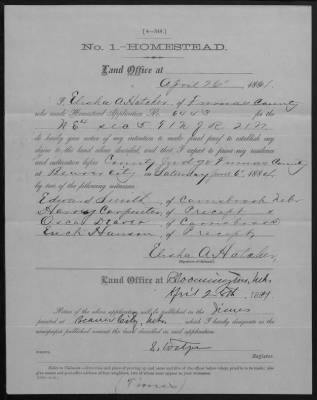 [4—348.]
No. 1.—HOMESTEAD.
Land Office at
April 26" 1884.
I, Elisha A Hatcher, of Furnas County
who made Homestead Application No. 6443 for the
sec 5 R 21 W
do hereby give notice of my intention to make final proof to establish my
claim to the land above described, and that I expect to prove my residence
and cultivation before County Judge Furnas County
at Beaver City on Saturday June 6" 1884,
by two of the following witnesses:
Edward Smith, of Carrisbrook Nebr
Harvey Carpenter, of Precept
Oscar, of Carrisbrook
Erick Hanson, of Precept
Elisha A Hatcher,
Signature of Claimant.
Land Office at Bloomington, Neb.
April 28th, 1884
Notice of the above application will be published in the Times
printed at Beaver City, Neb., which I hereby designate as the
newspaper published nearest the land described in said application.
Register.
(Times)